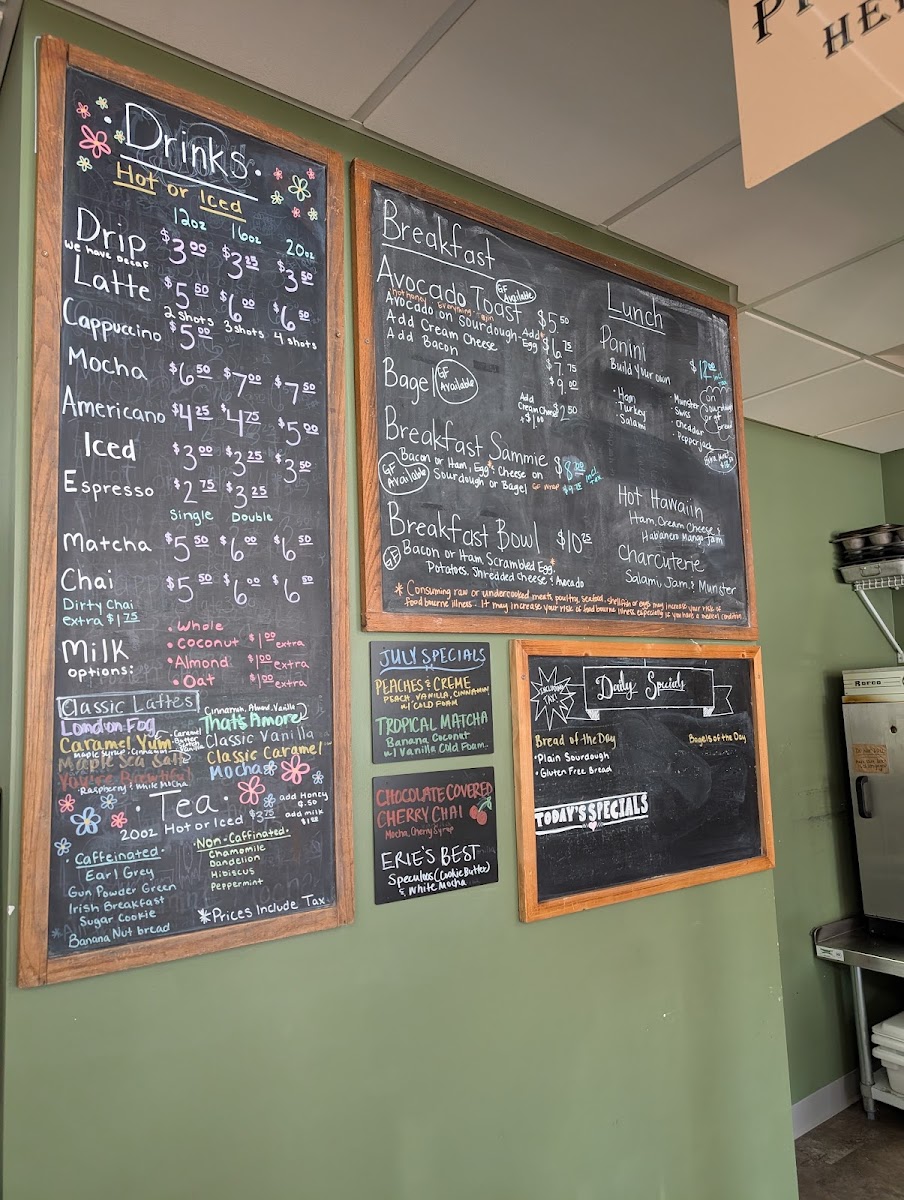 Drinks
Hot or Iced
12oz 16oz 20oz
Drip $3.00 $3.25 $3.50
we have Decaf
Latte $5.50 $6.00 $6.50
2 shots 3 shots 4 shots
Cappuccino $5.00
Mocha $6.50 $7.00 $7.50
Americano $4.25 $4.75 $5.00
Iced $3.00 $3.25 $3.50
Espresso $2.75 $3.25
Single Double
Matcha $5.50 $6.00 $6.50
Chai $5.50 $6.00 $6.50
Dirty Chai
extra $1.75
Milk
options:
• Whole
• Coconut $1.00 extra
• Almond $1.00 extra
• Oat $1.00 extra
Classic Lattes
London Fog
Caramel Yum
Caramel Butter
Vanilla
Maple Syrup, Cinnamon
Maple Sea Salt
Raspberry & White Mocha
Cinnamon, Almond, Vanilla
That's Amore
Classic Vanilla
Classic Caramel
Mocha
• Tea •
20oz Hot or Iced $3.75
add Honey
$.50
add milk
$1.00
Caffeinated
Earl Grey
Gun Powder Green
Irish Breakfast
Sugar Cookie
Banana Nut bread
Non-Caffinated
Chamomile
Dandelion
Hibiscus
Peppermint
*Prices Include Tax
Breakfast
Avocado Toast GF Available
Avocado on Sourdough $5.50
Add Egg* $6.75
Add Cream Cheese $7.75
Add Bacon $9.00
Bagel GF Available $2.50
Add
Cream Cheese
+$1.00
Breakfast Sammie $8.00 incl tax
Bacon or Ham, Egg* & Cheese on
Sourdough or Bagel GF wrap $9.75
GF Available
Breakfast Bowl $10.25
GF
Bacon or Ham Scrambled Egg*
Potatoes, Shredded Cheese & Avocado
* Consuming raw or undercooked meats, poultry, seafood, shellfish or eggs may increase your risk of
food bourne illness. It may increase your risk of food bourne illness, especially if you have a medical condition
Lunch
Panini
Build Your own
• Ham
• Turkey
• Salami
• Munster
• Swiss
• Cheddar
• Pepperjack
on
Sourdough
or gf
bread
Hot Hawaiin
Ham, Cream Cheese &
Habanero Mango Jam
Charcuterie
Salami, Jam & Munster
JULY SPECIALS
PEACHES & CREME
PEACH, VANILLA, CINNAMON
w/ COLD FOAM
TROPICAL MATCHA
Banana, Coconut
w/ Vanilla Cold Foam
CHOCOLATE COVERED
CHERRY CHAI
Mocha, Cherry Syrup
ERIE'S BEST
Speculoos (Cookie Butter)
& White Mocha
INCLUDING
TAX
Daily Specials
Bread of the Day
• Plain Sourdough
• Gluten Free Bread
Bagels of the Day
TODAY'S SPECIALS
HE